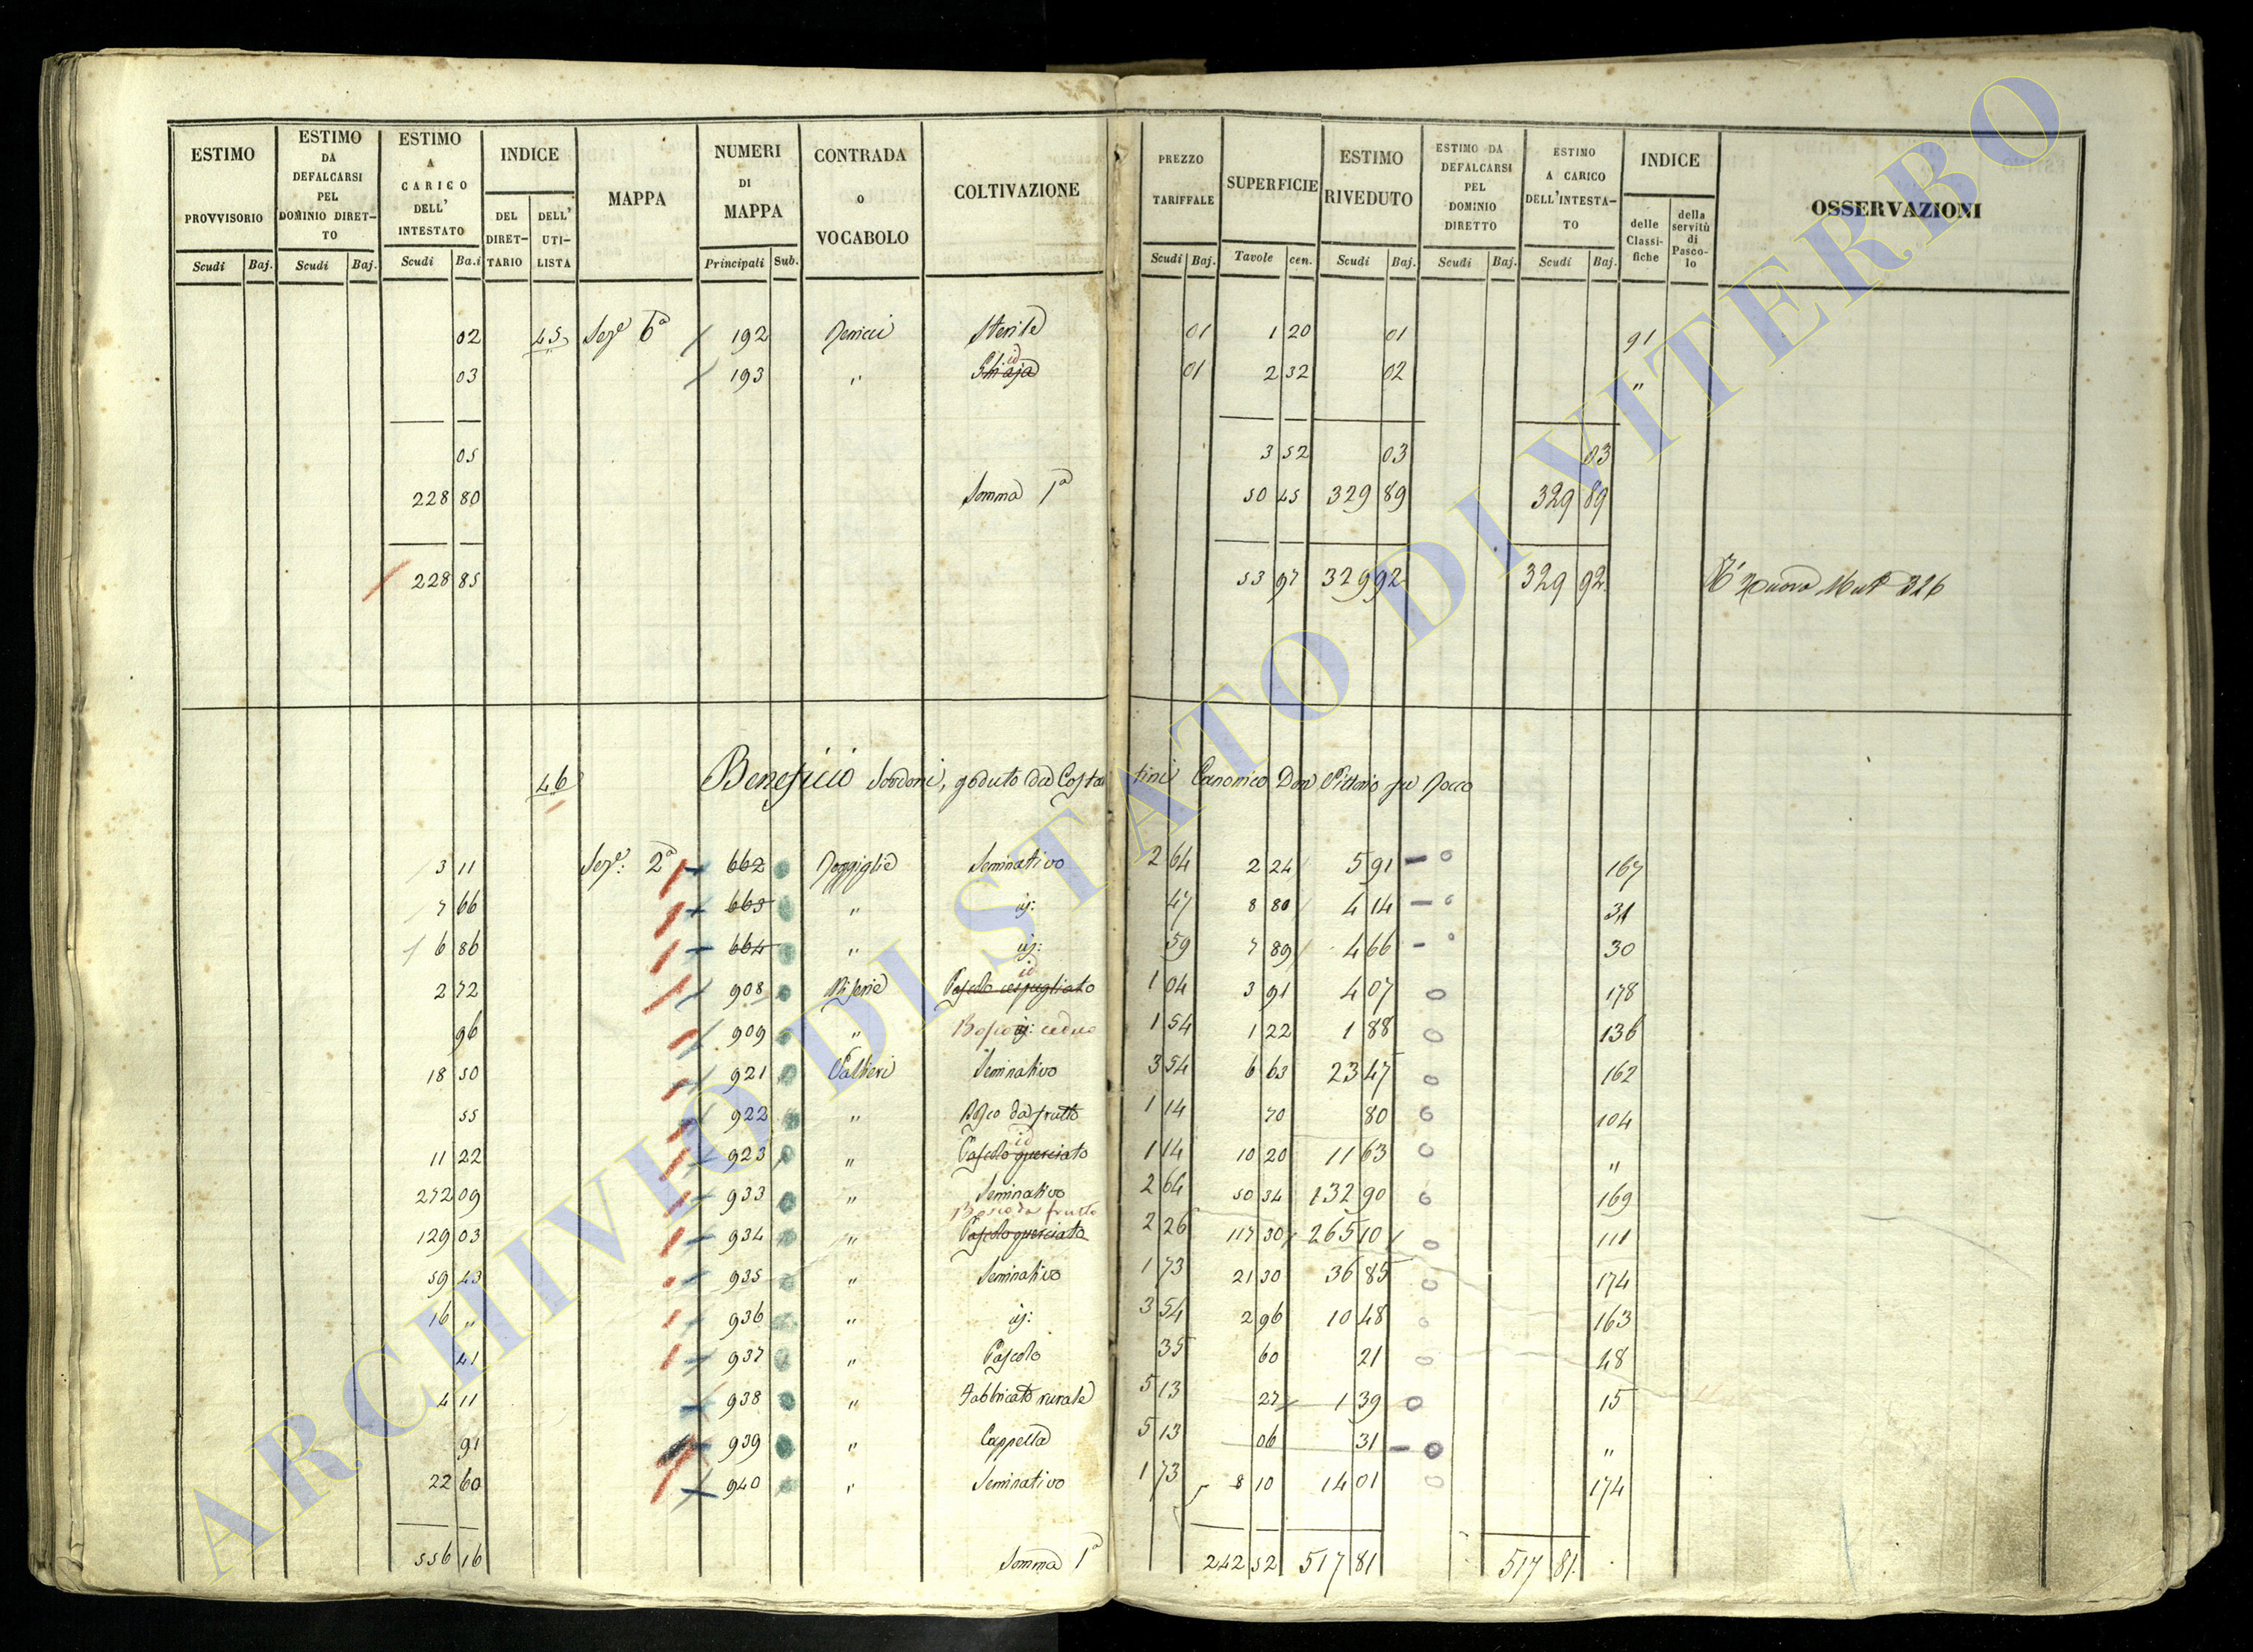 ESTIMO PROVVISORIO | ESTIMO DA DEFALCARSI PEL DOMINIO DIRET-TO | ESTIMO A CARICO DELL' INTESTATO | INDICE | MAPPA | NUMERI DI MAPPA | CONTRADA o VOCABOLO | COLTIVAZIONE | PREZZO TARIFFALE | SUPERFICIE | ESTIMO RIVEDUTO | ESTIMO DA DEFALCARSI PEL DOMINIO DIRETTO | ESTIMO A CARICO DELL'INTESTA-TO | INDICE | OSSERVAZIONI
DEL DIRET-TARIO | DELL' UTI-LISTA | delle Classi-fiche | della servitù di Pasco-lo
Scudi | Baj. | Scudi | Baj. | Scudi | Ba.i | Principali | Sub. | Scudi | Baj. | Tavole | cen. | Scudi | Baj. | Scudi | Baj. | Scudi | Baj.
02 | 45 | Sez.e 6a | 192 | Sterile | 01 | 1 20 | 01 | 91
03 | 193 | " | id | 01 | 2 32 | 02 | "
05 | 3 52 | 03 | 03
228 80 | Somma 1a | 50 45 | 329 89 | 329 89
228 85 | 53 97 | 329 92 | 329 92 | 326
46 | Beneficio Sordoni, goduto da Costantini Canonico Don Vittorio fu Rocco
3 11 | Sez.e: 2a | 662 | Seminativo | 2 64 | 2 24 | 5 91 | 167
7 66 | 663 | " | id: | 47 | 8 80 | 4 14 | 31
6 86 | 664 | " | id: | 59 | 7 89 | 4 66 | 30
2 72 | 908 | Pascolo cespugliato id | 1 04 | 3 91 | 4 07 | 178
96 | 909 | " | Bosco ceduo | 1 54 | 1 22 | 1 88 | 136
18 50 | 921 | Seminativo | 3 54 | 6 63 | 23 47 | 162
55 | 922 | " | Bosco da frutto | 1 14 | 70 | 80 | 104
11 22 | 923 | " | Pascolo querciato id | 1 14 | 10 20 | 11 63 | "
272 09 | 933 | " | Seminativo | 2 64 | 50 34 | 132 90 | 169
129 03 | 934 | " | Bosco da frutto Pascolo querciato | 2 26 | 117 30 | 265 10 | 111
59 43 | 935 | " | Seminativo | 1 73 | 21 30 | 36 85 | 174
16 " | 936 | " | id: | 3 54 | 2 96 | 10 48 | 163
41 | 937 | " | Pascolo | 35 | 60 | 21 | 48
4 11 | 938 | " | Fabbricato rurale | 5 13 | 27 | 1 39 | 15
91 | 939 | " | Cappella | 5 13 | 06 | 31 | "
22 60 | 940 | " | Seminativo | 1 73 | 8 10 | 14 01 | 174
556 16 | Somma 1a | 242 52 | 517 81 | 517 81
ARCHIVIO DI STATO DI VITERBO